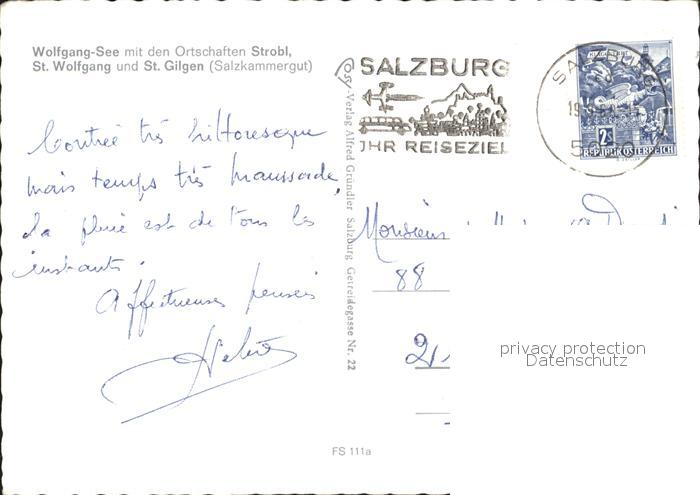 Wolfgang-See mit den Ortschaften Strobl,
St. Wolfgang und St. Gilgen (Salzkammergut)
Contrée très pittoresque
mais temps très maussade,
la pluie est de tous les
instants.
Affectueuses pensées
Cosy-Verlag Alfred Gründler, Salzburg, Getreidegasse Nr. 22
SALZBURG
IHR REISEZIEL
SALZBURG
2S
REPUBLIK ÖSTERREICH
Monsieur
88
21,
privacy protection
Datenschutz
FS 111a